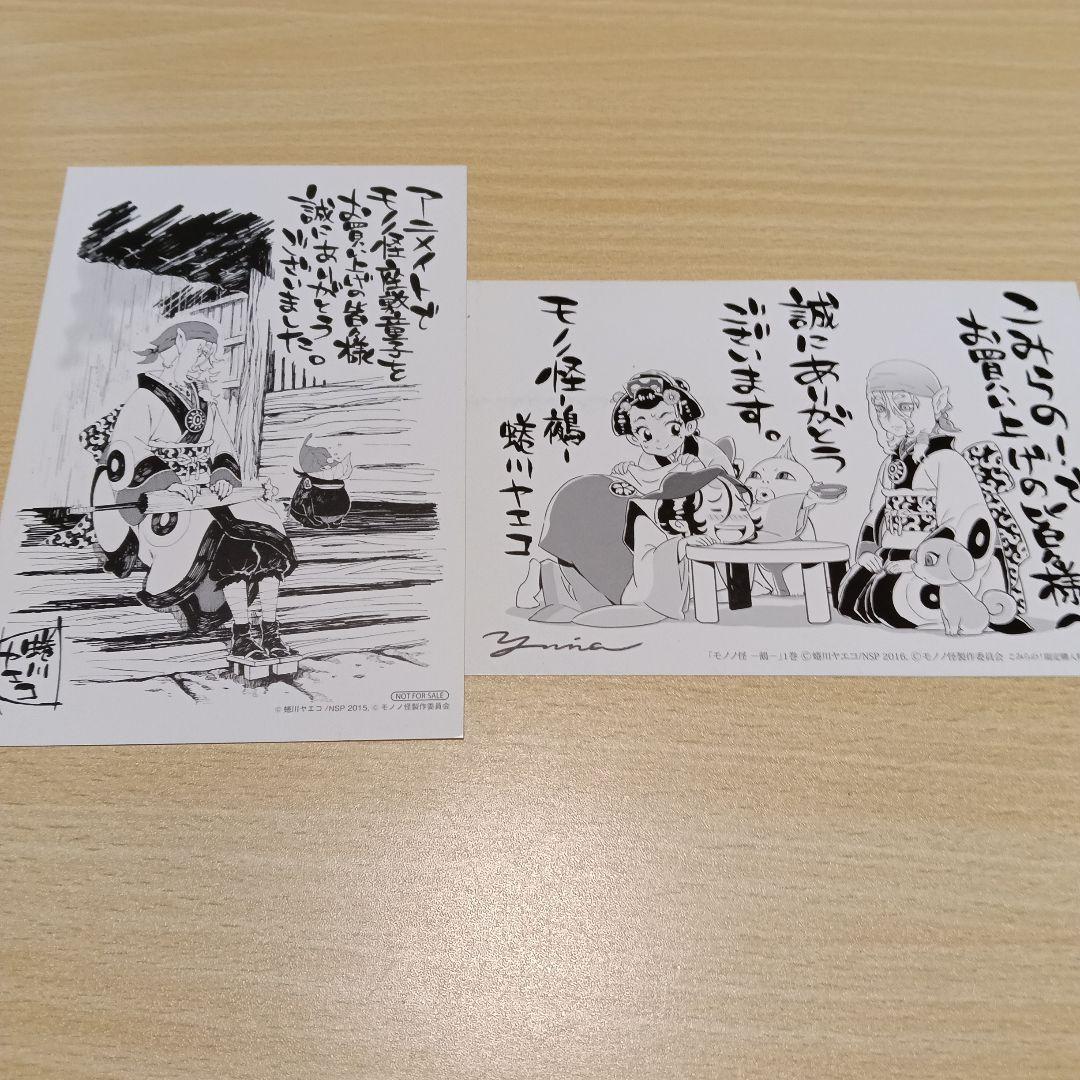 アニメイトで
モノノ怪座敷童子を
お買い上げの皆々様
誠にありがとう
ございました。
蜷川
ヤエコ
NOT FOR SALE
© 蜷川ヤエコ/NSP 2015, © モノノ怪製作委員会
こみらの!で
お買い上げの皆々様!
誠にありがとう
ございます。
モノノ怪-鵺-
蜷川ヤエコ
「モノノ怪 -鵺-」1巻 ©蜷川ヤエコ/NSP 2016, ©モノノ怪製作委員会 こみらの!限定購入特